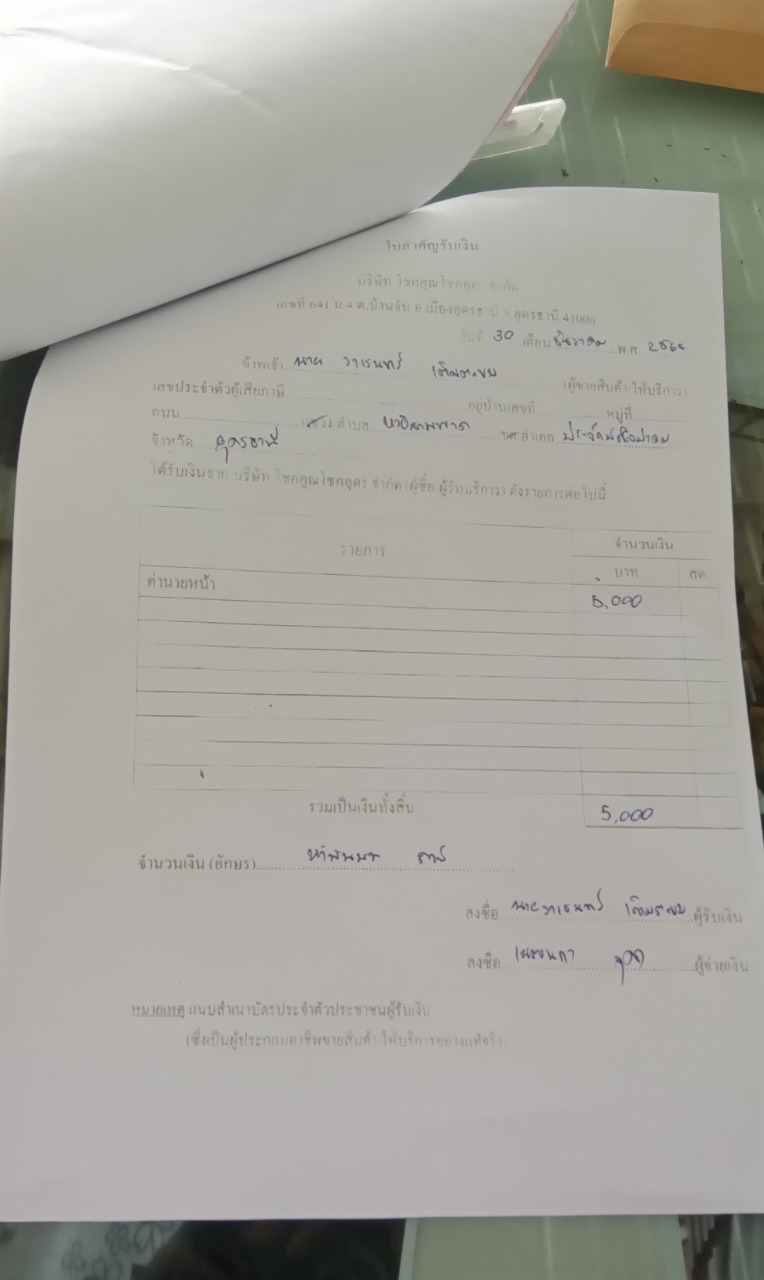 ใบสำคัญรับเงิน
บริษัท โชคคูณโชคอุดร จำกัด
เลขที่ 641 ม.4 ต.บ้านจั่น อ.เมืองอุดรธานี จ.อุดรธานี 41000
วันที่ 30 เดือน ธันวาคม พ.ศ.
ข้าพเจ้า นาย วาเรนทร์ (ผู้ขายสินค้า/ให้บริการ)
เลขประจำตัวผู้เสียภาษี อยู่บ้านเลขที่ หมู่ที่
ถนน แขวง/ตำบล เขต/อำเภอ ประจักษ์ศิลปาคม
จังหวัด อุดรธานี
ได้รับเงินจาก บริษัท โชคคูณโชคอุดร จำกัด (ผู้ซื้อ/ผู้รับบริการ) ดังรายการต่อไปนี้
รายการ จำนวนเงิน
บาท สต.
ค่านายหน้า 5,000
รวมเป็นเงินทั้งสิ้น 5,000
จำนวนเงิน (อักษร) ห้าพันบาท ถ้วน
ลงชื่อ นายวาเรนทร์ ผู้รับเงิน
ลงชื่อ ผู้จ่ายเงิน
หมายเหตุ แนบสำเนาบัตรประจำตัวประชาชนผู้รับเงิน
(ซึ่งเป็นผู้ประกอบอาชีพขายสินค้า/ให้บริการอย่างแท้จริง)